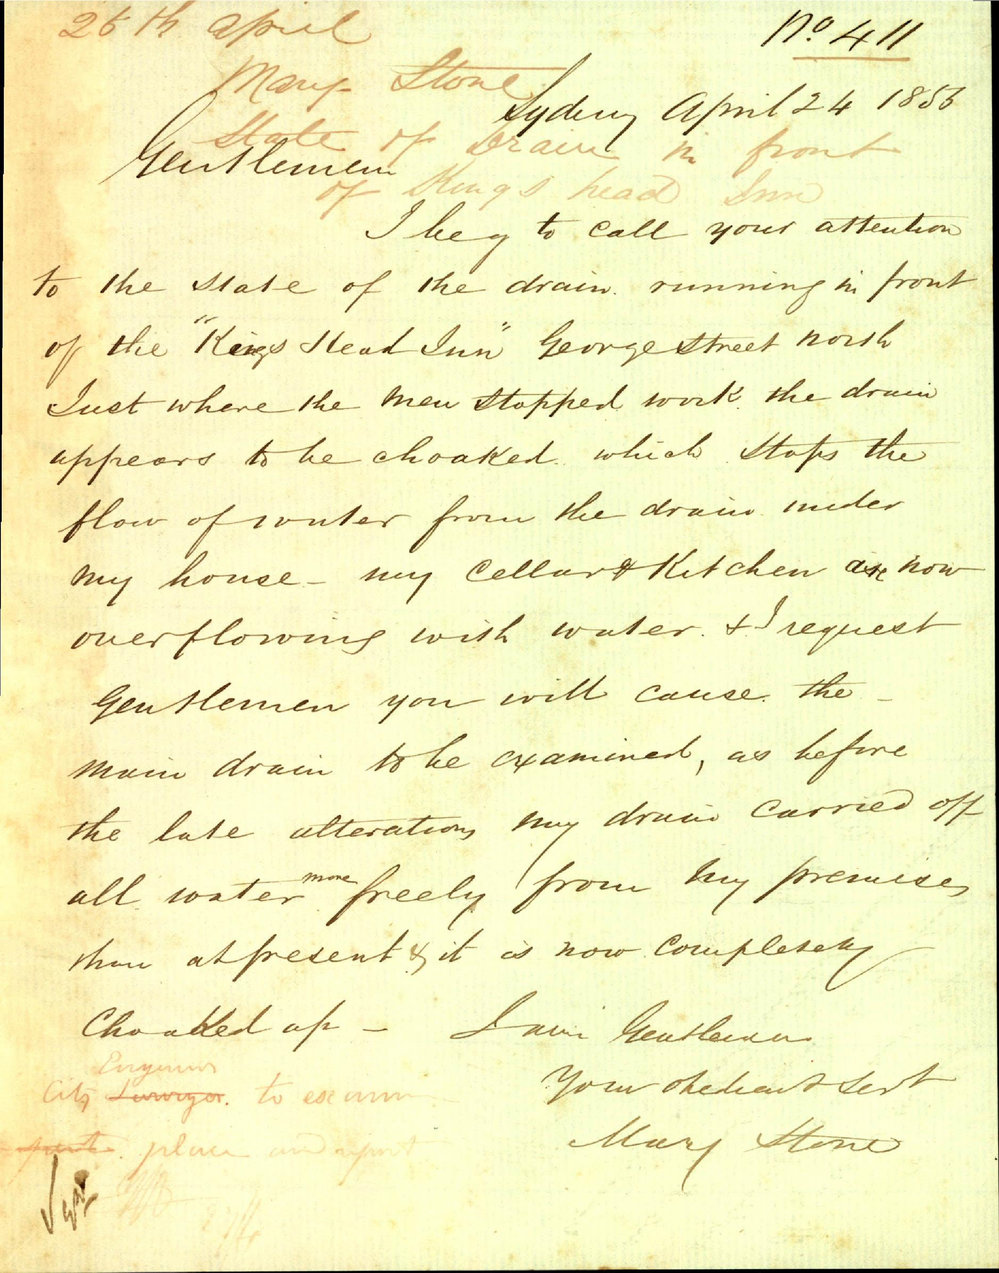 25th April
No. 411
Mary Stone
Sydney April 24 1856
State of Drain in front
Gentlemen
of Kings head Inn
I beg to call your attention
to the state of the drain. running in front
of the "Kings Head Inn" George Street North
Just where the Men Stopped work. the drain
appears to be choaked. which Stops the
flow of water from the drain under
my house - my Cellar & Kitchen are now
overflowing with water. & I request
Gentlemen you will cause. the -
main drain to be examined, as before
the late alterations my drain carried off
all water more freely from my premises
than at present & it is now completely
Choaked up - I am Gentlemen
Engineer
Your obedient Servt
City Surveyor. to examine
Mary Stone
place and report